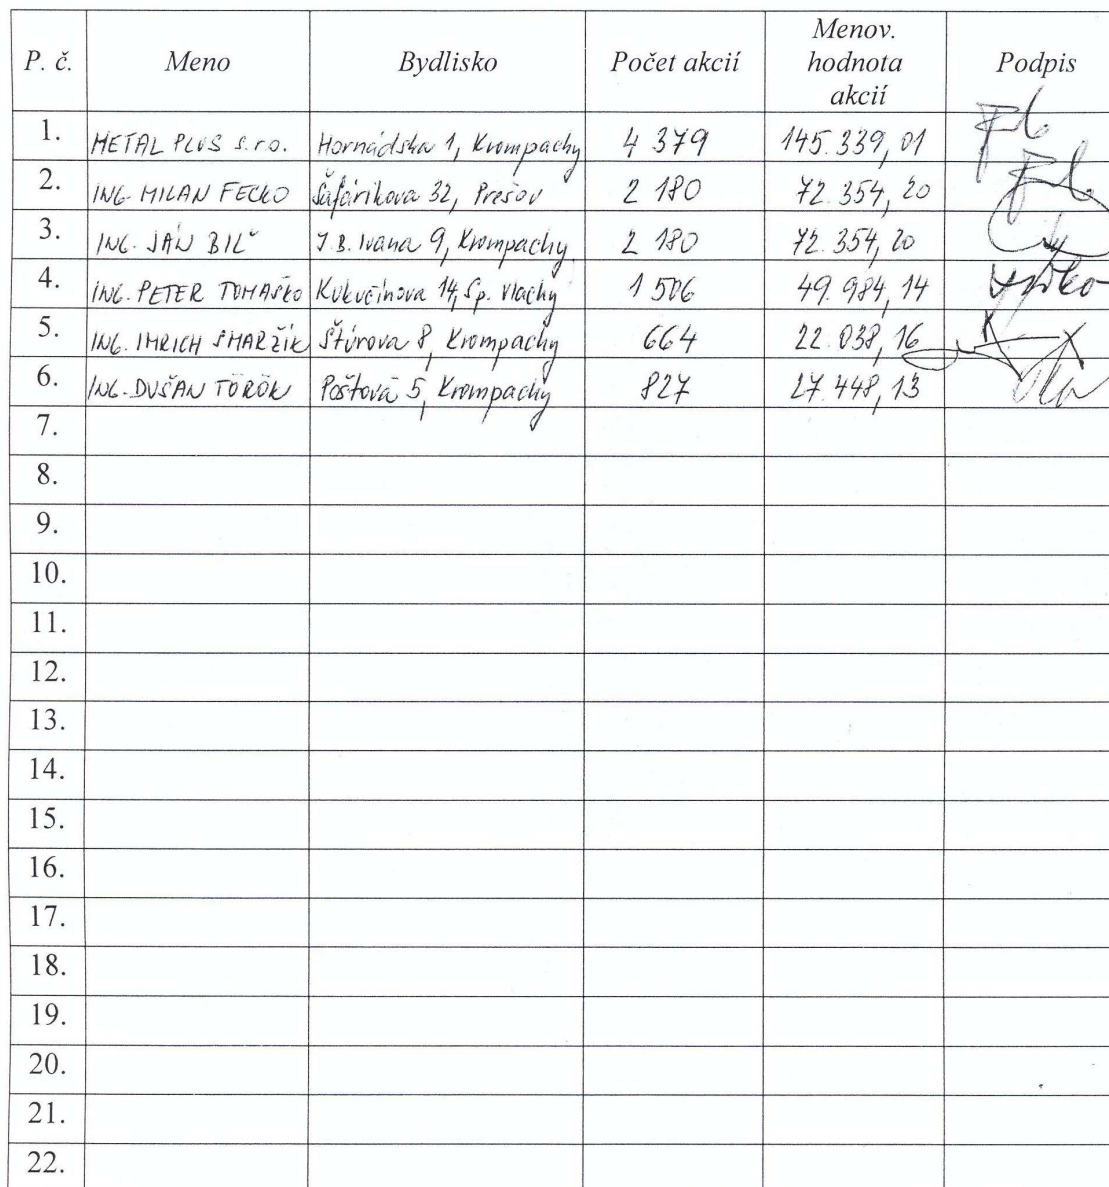 P. č. Meno Bydlisko Počet akcií Menov. hodnota akcií Podpis
1. METAL PLUS s.r.o. Hornádska 1, Krompachy 4 379 145.339,01
2. ING. MILAN FECKO Šafárikova 32, Prešov 2 180 72.354,20
3. ING. JÁN BILˇ J.B. Ivana 9, Krompachy 2 180 72.354,20
4. ING. PETER TOMAŠKO Kukučínova 14, Sp. Vlachy 1 506 49.984,14
5. ING. IMRICH SMARŽÍK Štúrova 8, Krompachy 664 22.038,16
6. ING. DUŠAN TÖRÖK Poštová 5, Krompachy 827 27.448,13
7.
8.
9.
10.
11.
12.
13.
14.
15.
16.
17.
18.
19.
20.
21.
22.